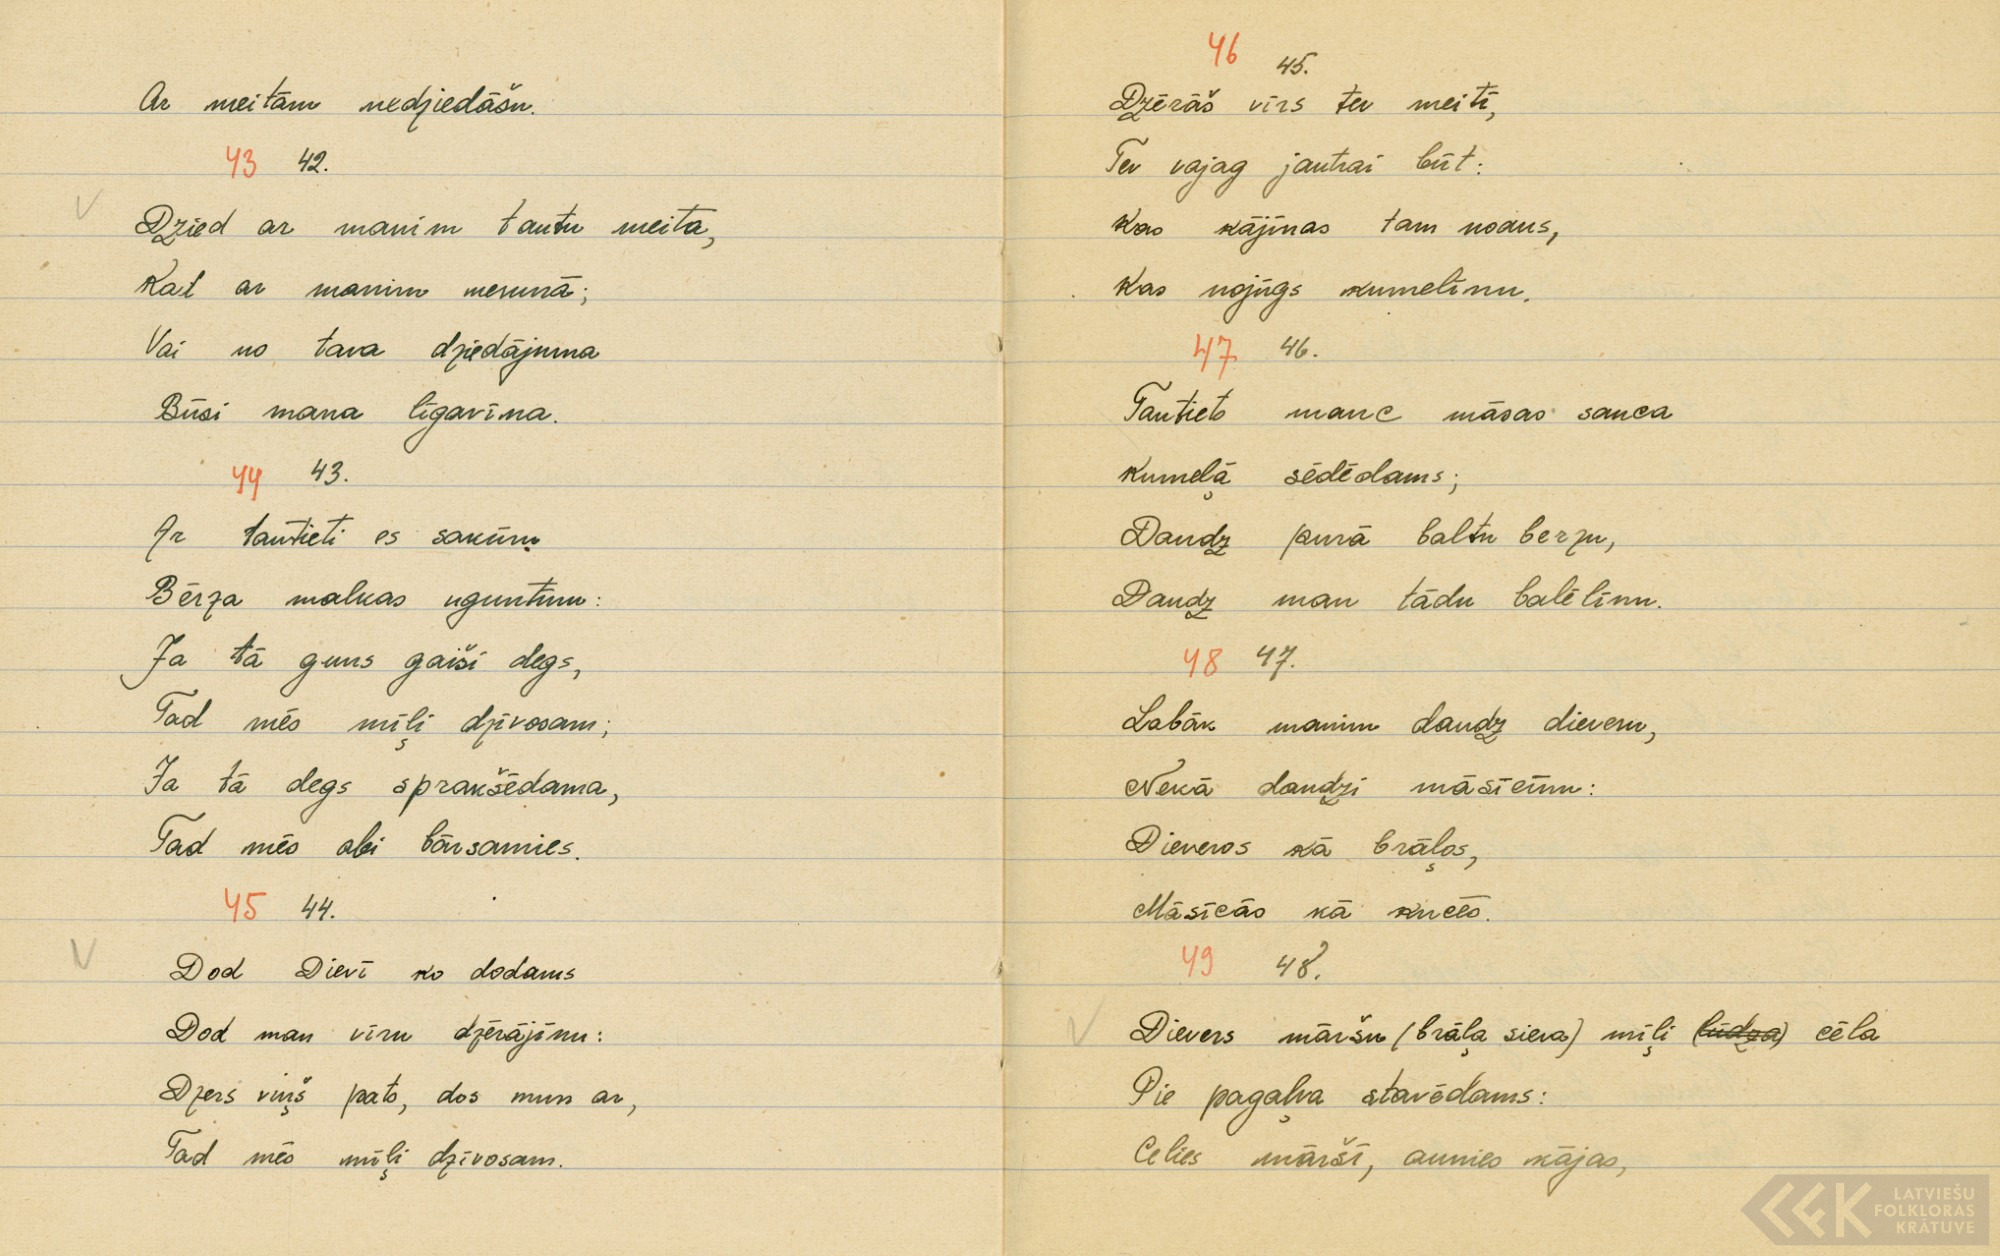 Ar meitām nedziedāšu.
43 42.
V
Dzied ar manim tautu meita,
Kat ar manim nerunā;
Vai no tava dziedājuma
Būsi mana līgavīna.
44 43.
Ar tautieti es sakūru
Bērza malkas uguntīnu:
Ja tā guns gaiši degs,
Tad mēs mīļi dzīvosam;
Ja tā degs sprakšēdama,
Tad mēs abi bārsamies.
45 44.
V
Dod Dievī ko dodams
Dod man vīru dzērājīnu:
Dzers viņš pats, dos mun ar,
Tad mēs mīļi dzīvosam.
46 45.
Dzērāš vīrs tev meitī,
Tev vajag jautrai būt:
Kas kājīnas tam noaus,
Kas nojūgs kumelīnu.
47 46.
Tautiets manc māsas sauca
Kumeļā sēdēdams;
Daudz purā baltu berzu,
Daudz man tādu balēlīnu.
48 47.
Labāk manim daudz dieveru,
Nekā daudzi māsīcīnu:
Dieveros kā brāļos,
Māsīcās kā kucēs.
49 48.
V
Dievers māršu (brāļa sieva) mīļi (lūdza) cēla
Pie pagaļva stavēdams:
Celies māršī, aunies kājas,
LATVIEŠU
FOLKLORAS
KRĀTUVE